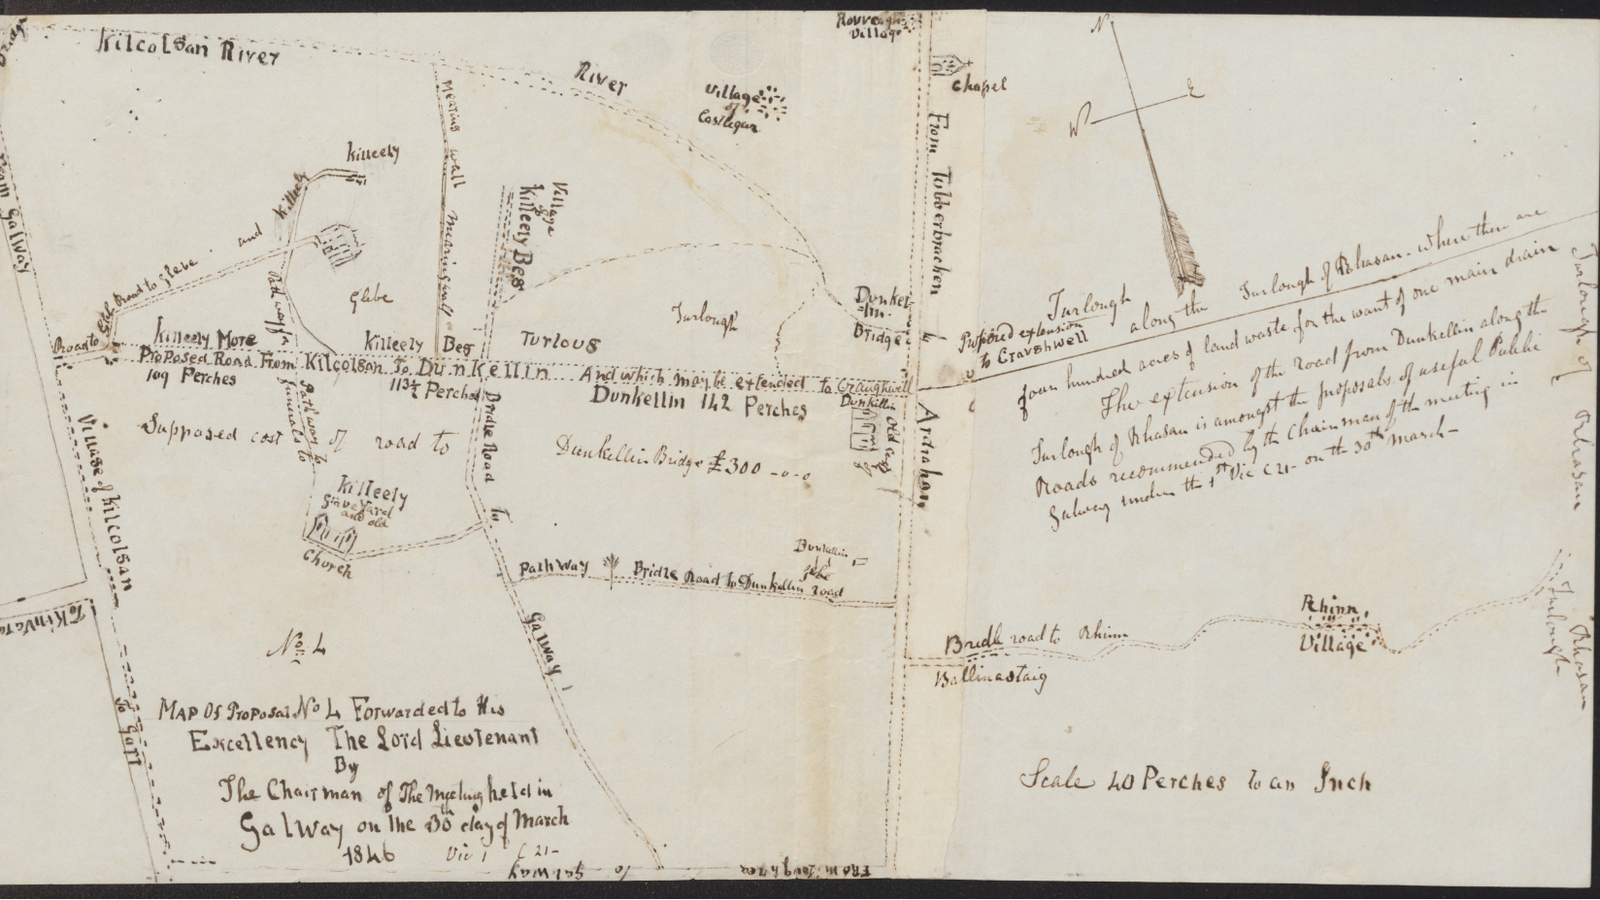 Kilcolsan River
River
Rovveagh
Village
Chapel
Village
of
Castlegar
N
W
E
From Galway
Mearing wall mearing wall
Killeely
and Killeely
Road to Glebe
Glebe
Village
of
Killeely Beg
From Tubberbracken to Ardrahan
Dunkel-
-lin-
Bridge
Turlough
Path way for
funerals to
Path way to
Road to
Killeely More
Killeely Beg
Turloug
Proposed Road From Kilcolsan To Dunkellin And which may be extended to Craughwell
109 Perches
113½ Perches
Dunkellin 142 Perches
Dunkellin
Old
Supposed cost of road to Dunkellin Bridge £300-0-0
Turlough
Proposed extension along the Turlough of Rhasan. where there are
to Craughwell
four hundred acres of land waste for the want of one main drain
The extension of the road from Dunkellin along the
Turlough of Rhasan is amongst the proposals of useful Public
Roads recommended by the Chairman of the meeting in
Galway under the 1st Vic C 21- on the 30th March-
Turlough of Rhasan
Village of Kilcolsan
To Gort
To Kinvara
Killeely
Graveyard
and old
Church
Bridle Road To Galway
Path Way
Bridle Road to Dunkellin Road
Dunkellin
Glebe
Bridle road to Rhinn
Ballinastaig
Rhinn
Village
Turlough
Rhasan
No. 4
Map Of Proposal No 4 Forwarded to His
Excellency The Lord Lieutenant
By
The Chairman of The Meeting held in
Galway on the 30th day of March
1846 Vic 1 C 21-
to Galway
From Loughrea
Scale 40 Perches to an Inch